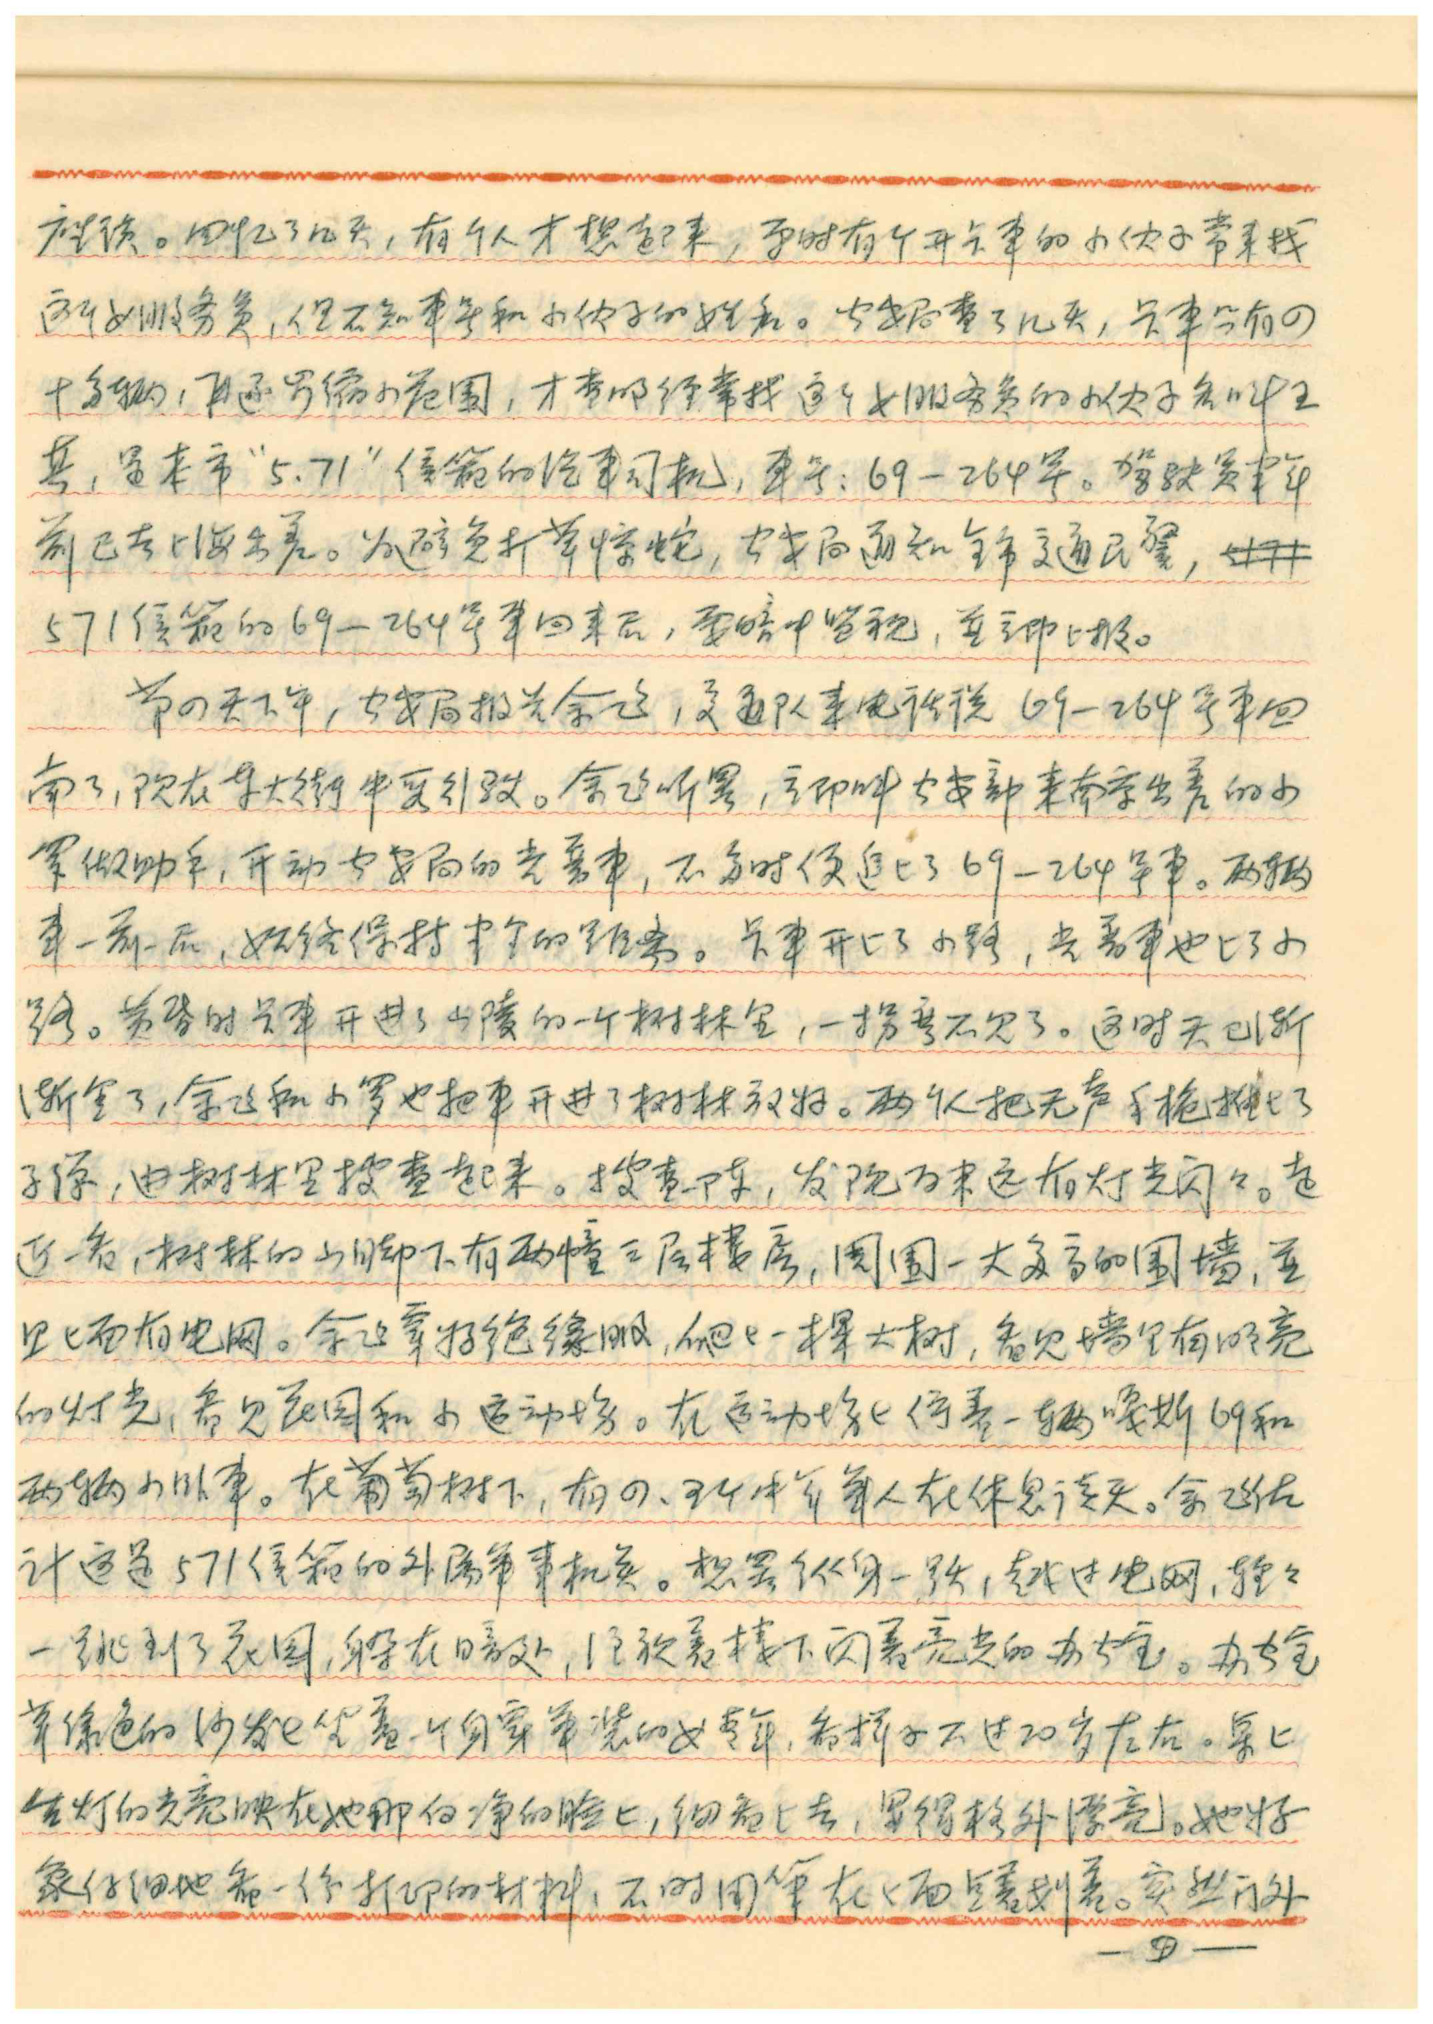 底错。回忆了几天，有个人才想起来，平时有个开卡车的小伙子常来找
这个女服务员，但不知车号和小伙子的姓名。公安局查了几天，卡车只有四
十多辆，再逐步缩小范围，才查明经常找这个女服务员的小伙子名叫王
其，是本市“5.71”信箱的汽车司机，车号：69—264号。驾驶员半年
前已去上海出差。为避免打草惊蛇，公安局通知全市交通民警，
571信箱的69—264号车回来后，要暗中监视，并立即上报。
第四天下午，公安局报告余飞，交通队来电话说69—264号车回
南了，现在东大街中安引驶。余飞听罢，立即叫公安部来南京出差的小
罗做助手，开动公安局的光荣车，不多时便追上了69—264号车。两辆
车一前一后，始终保持安全的距离。卡车开上了小路，光荣车也上了小
路。黄昏时卡车开进了山陵的一个树林里，一拐弯不见了。这时天已渐
渐黑了，余飞和小罗也把车开进了树林放好。两个人把无声手枪推上了
子弹，由树林里搜查起来。搜查一阵，发现不远有灯光闪々。走
近一看，树林的山脚下有两幢三层楼房，周围一丈多高的围墙，并
且上面有电网。余飞穿好绝缘服，爬上一棵大树，看见墙里有明亮
的灯光，看见花园和小运动场。在运动场上停着一辆嘎斯69和
两辆小卧车。在葡萄树下，有四、五个中年军人在休息谈天。余飞估
计这是571信箱的外属军事机关。想罢纵身一跃，越过电网，轻々
一跳到了花园，躲在暗处，注视着楼下闪着亮光的办公室。办公室
草绿色的沙发上坐着一个身穿军装的女青年，看样子不过20岁左右。桌上
台灯的光亮映在她那白净的脸上，细看上去，显得格外漂亮。她好
象仔细地看一份打印的材料，不时用笔在上面点着划着。突然门外